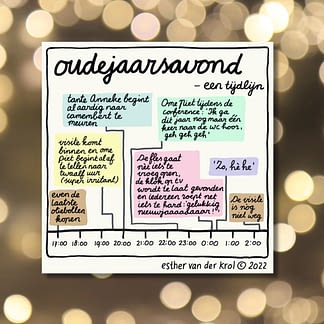 oudejaarsavond
- een tijdlijn
tante Anneke begint
al aardig naar
camembert te
meuren
Ome Piet tijdens de
conference: "Ik ga
dit jaar nog maar één
keer naar de wc hoor,
geh geh geh"
visite komt
binnen, en ome
Piet begint al af
te tellen naar
twaalf uur
(super irritant)
De fles gaat
net iets te
vroeg open,
de klok op tv
wordt te laat gevonden
en iedereen roept net
iets te hard: gelukkig
nieuwjaaaadaaar!!"
'Zo, hè hè'
even de
laatste
oliebollen
kopen
De visite
is nog
niet weg
17:00 18:00 19:00 20:00 21:00 22:00 23:00 0:00 1:00 2:00
esther van der krol © 2022